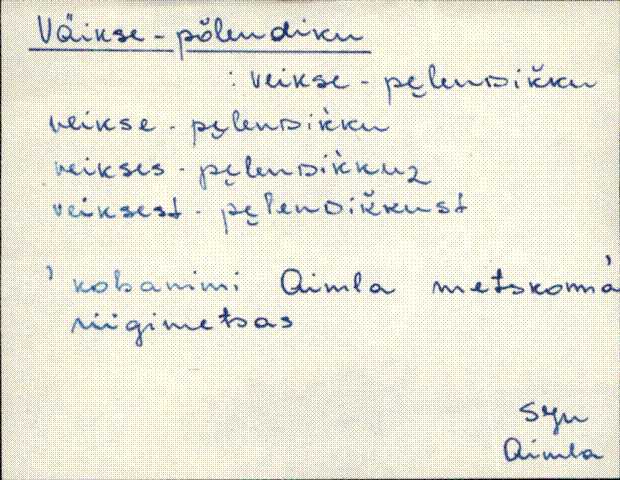 Väikse-põlendiku
: veikse - pęlenDik̆ku
veikse - pęlenDik̀ku
veikses - pęlenDik̀kuz
veiksest - pęlenDik̆kust
' kohanimi Aimla metskonna
riigimetsas
Syn
Aimla